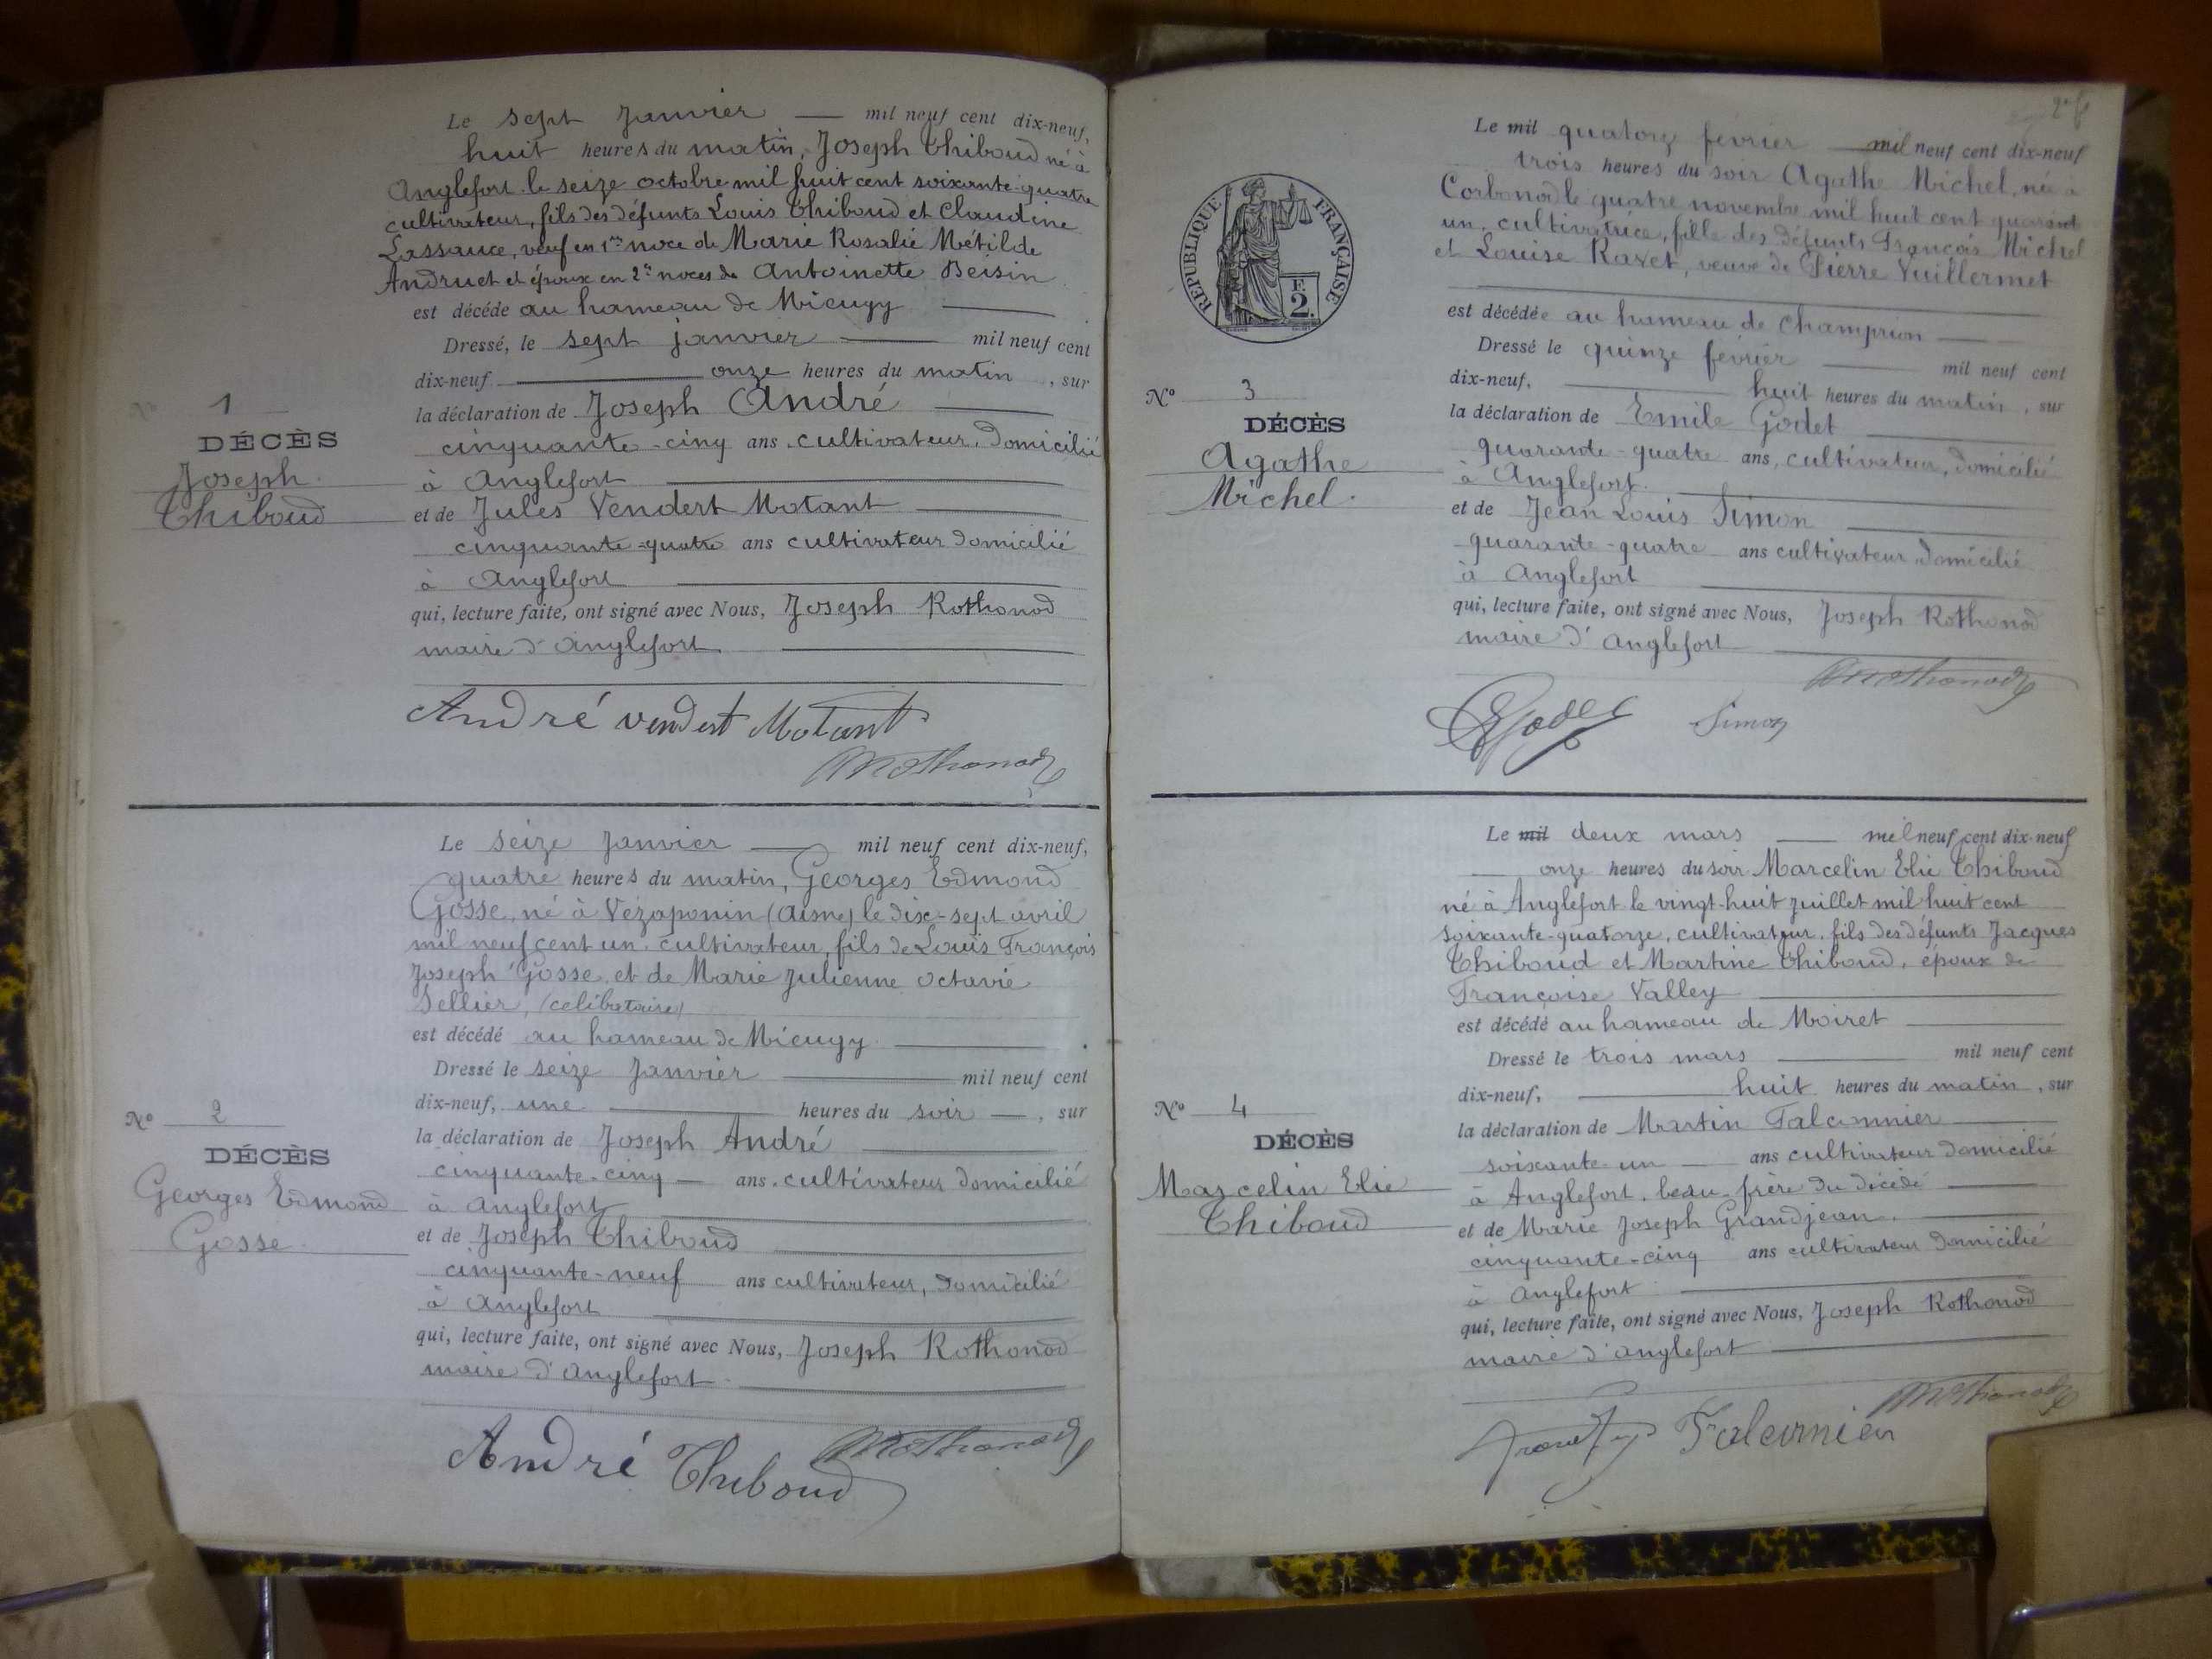 Le sept Janvier mil neuf cent dix-neuf,
huit heures du matin, Joseph Thiboud né à
Anglefort le seize octobre mil huit cent soixante-quatre
cultivateur, fils des défunts Louis Thiboud et Claudine
Lassauce, veuf en 1res noce de Marie Rosalie Métilde
Andruet et époux en 2es noces de Antoinette Beisin
est décédé au hameau de Mieugy
Dressé, le sept janvier mil neuf cent
dix-neuf onze heures du matin, sur
la déclaration de Joseph André
cinquante-cinq ans, cultivateur, domicilié
à Anglefort
et de Jules Vendert Motant
cinquante-quatre ans cultivateur domicilié
à Anglefort
qui, lecture faite, ont signé avec Nous, Joseph Rothonod
maire d'Anglefort
André vendert Motant
Rothonod
No 1
DÉCÈS
Joseph
Thiboud
Le seize Janvier mil neuf cent dix-neuf,
quatre heures du matin, Georges Edmond
Gosse, né à Vézaponin (Aisne) le dix-sept avril
mil neuf cent un, cultivateur, fils de Louis François
Joseph Gosse, et de Marie Julienne Octavie
Sellier, (célibataire)
est décédé au hameau de Mieugy
Dressé le seize Janvier mil neuf cent
dix-neuf, une heures du soir, sur
la déclaration de Joseph André
cinquante-cinq ans, cultivateur domicilié
à Anglefort
et de Joseph Thiboud
cinquante-neuf ans cultivateur, domicilié
à Anglefort
qui, lecture faite, ont signé avec Nous, Joseph Rothonod
maire d'Anglefort
André Thiboud Rothonod
No 2
DÉCÈS
Georges Edmond
Gosse
Le mil quatorze février mil neuf cent dix-neuf
trois heures du soir Agathe Michel, née à
Corbonod le quatre novembre mil huit cent quarante
un, cultivatrice, fille des défunts François Michel
et Louise Ravet, veuve de Pierre Vuillermet
est décédée au hameau de Champrion
Dressé le quinze février mil neuf cent
dix-neuf, huit heures du matin, sur
la déclaration de Emile Godet
quarante-quatre ans, cultivateur, domicilié
à Anglefort
et de Jean Louis Simon
quarante-quatre ans cultivateur domicilié
à Anglefort
qui, lecture faite, ont signé avec Nous, Joseph Rothonod
maire d'Anglefort
Rothonod
EGodet Simon
RÉPUBLIQUE FRANÇAISE
F.
2.
No 3
DÉCÈS
Agathe
Michel.
Le mil deux mars mil neuf cent dix-neuf
onze heures du soir Marcelin Elie Thiboud
né à Anglefort le vingt-huit juillet mil huit cent
soixante-quatorze, cultivateur, fils des défunts Jacques
Thiboud et Martine Thiboud, époux de
Françoise Valley
est décédé au hameau de Moiret
Dressé le trois mars mil neuf cent
dix-neuf, huit heures du matin, sur
la déclaration de Martin Falconnier
soixante-un ans cultivateur domicilié
à Anglefort, beau-frère du décédé
et de Marie Joseph Grandjean
cinquante-cinq ans cultivateur domicilié
à Anglefort
qui, lecture faite, ont signé avec Nous, Joseph Rothonod
maire d'Anglefort
Rothonod
Falconnier
No 4
DÉCÈS
Marcelin Elie
Thiboud